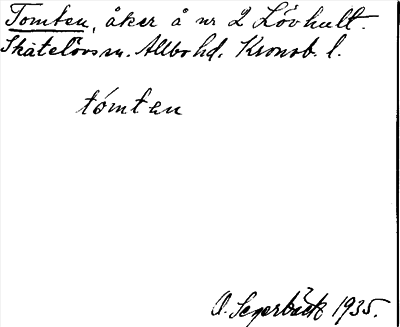 Tomten, åker å nr 2 Lövhult.
Skatelövs sn. Allbo hd. Kronob. l.
tómten
O. Segerbäck 1935.